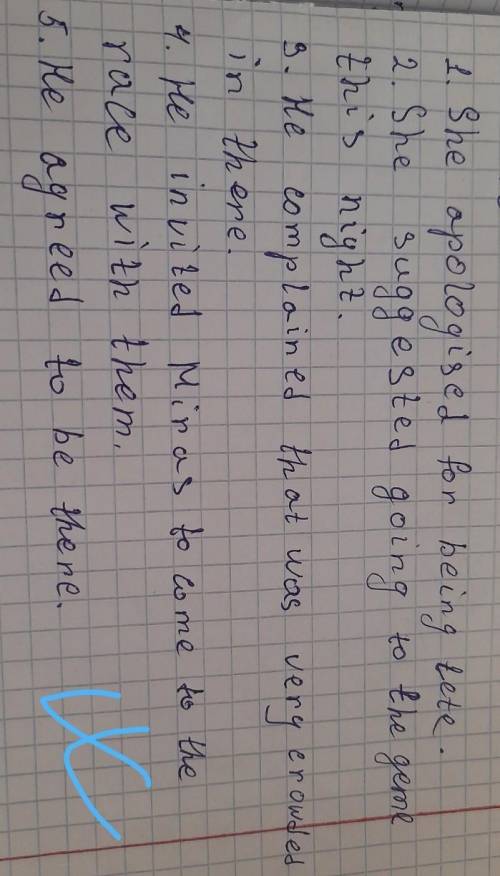 1. She apologised for being lete.
2. She suggested going to the geme
this night.
3. He complained that was very crowded
in there.
4. He invited Minas to come to the
race with them.
5. He agreed to be there.